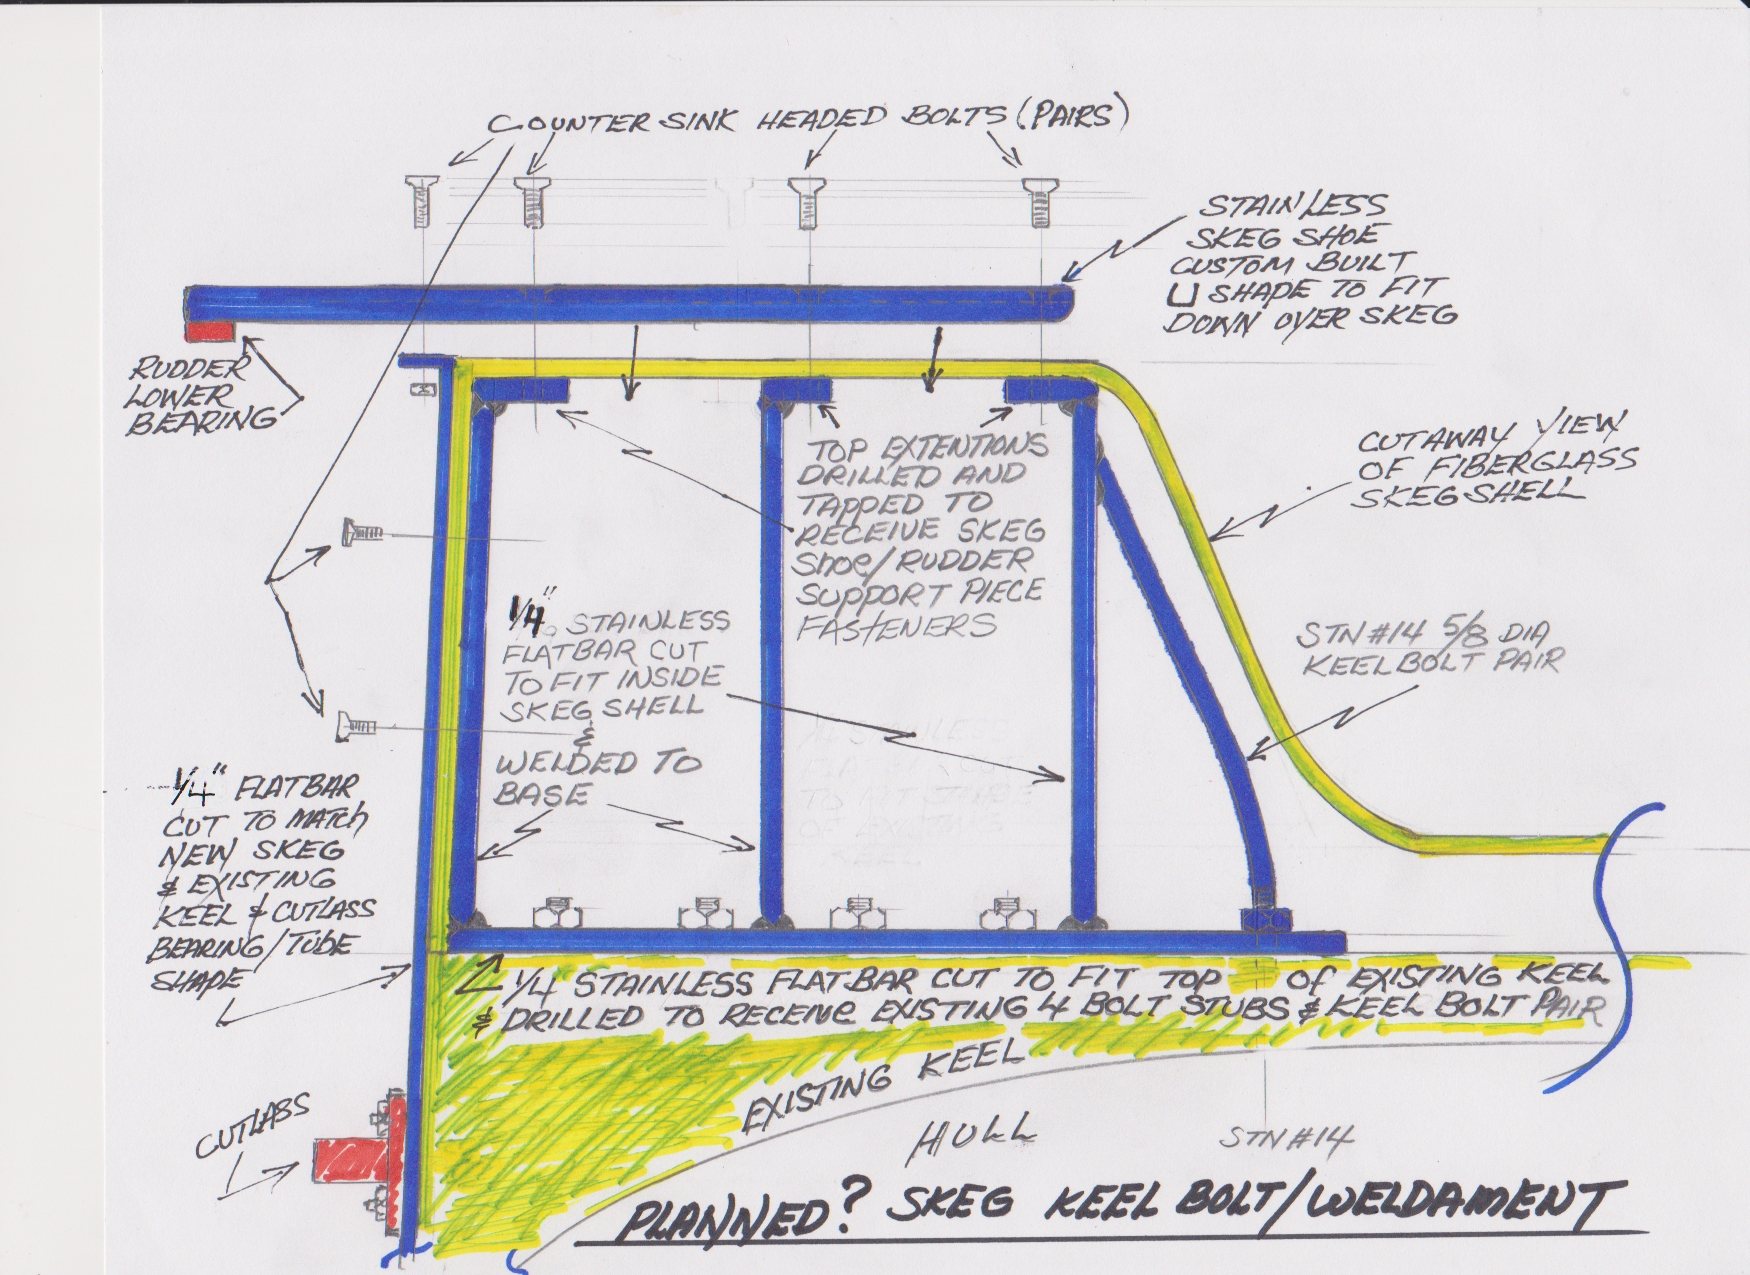 COUNTER SINK HEADED BOLTS (PAIRS)
STAINLESS
SKEG SHOE
CUSTOM BUILT
U SHAPE TO FIT
DOWN OVER SKEG
RUDDER
LOWER
BEARING
TOP EXTENTIONS
DRILLED AND
TAPPED TO
RECEIVE SKEG
Shoe/RUDDER
SUPPORT PIECE
FASTENERS
CUTAWAY VIEW
OF FIBERGLASS
SKEG SHELL
1/4" STAINLESS
FLATBAR CUT
TO FIT INSIDE
SKEG SHELL
&
WELDED TO
BASE
STN #14 5/8 DIA
KEEL BOLT PAIR
1/4" FLATBAR
CUT TO MATCH
NEW SKEG
& EXISTING
KEEL & CUTLASS
BEARING/TUBE
SHAPE
1/4 STAINLESS FLATBAR CUT TO FIT TOP OF EXISTING KEEL
& DRILLED TO RECEIVE EXISTING 4 BOLT STUBS & KEEL BOLT PAIR
EXISTING KEEL
CUTLASS
HULL
STN #14
PLANNED? SKEG KEEL BOLT/WELDAMENT